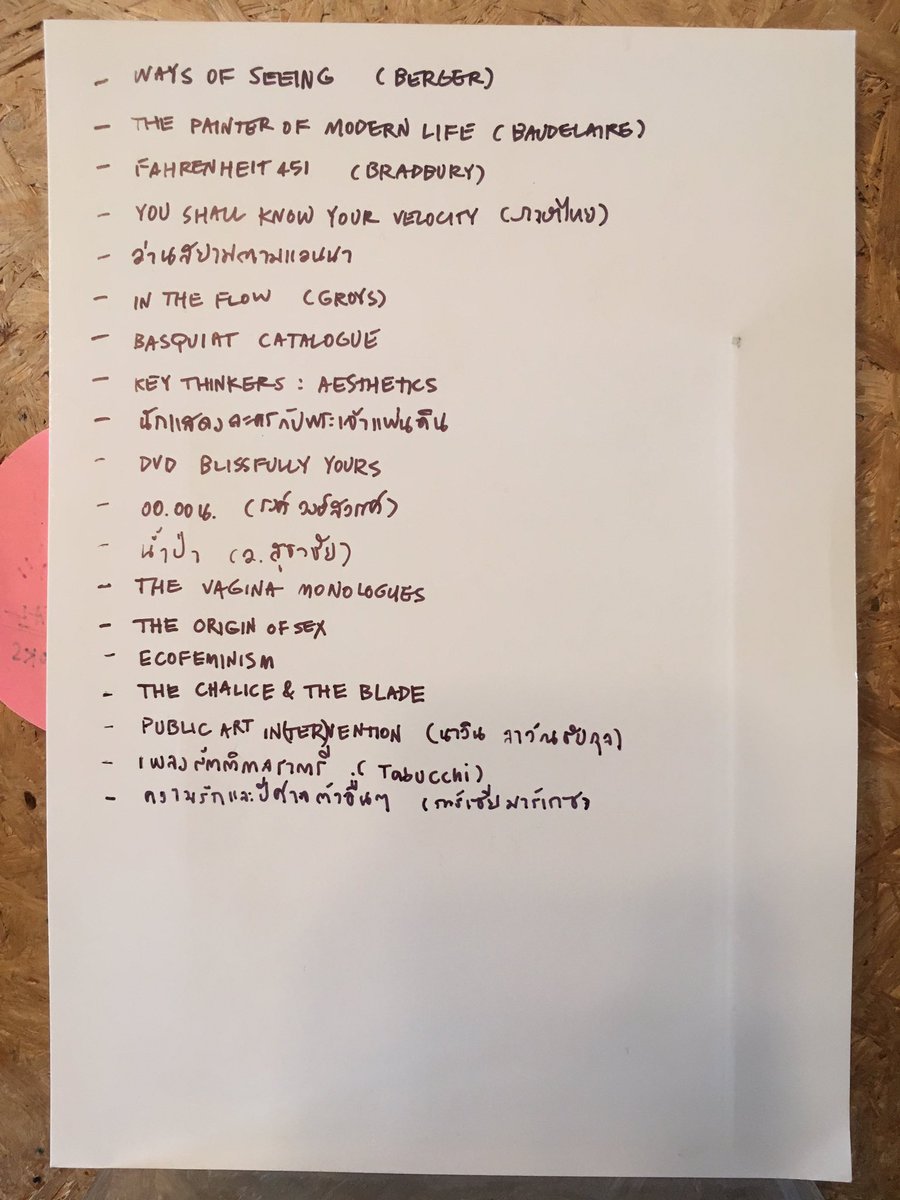 - WAYS OF SEEING (BERGER)
- THE PAINTER OF MODERN LIFE (BAUDELAIRE)
- FAHRENHEIT 451 (BRADBURY)
- YOU SHALL KNOW YOUR VELOCITY (ภาษาไทย)
- อ่านสยามตามแอนนา
- IN THE FLOW (GROYS)
- BASQUIAT CATALOGUE
- KEY THINKERS : AESTHETICS
- นักแสดงละครกับพระเจ้าแผ่นดิน
- DVD BLISSFULLY YOURS
- 00.00น. ('รงค์ วงษ์สวรรค์)
- น้ำป่า (ว. สุราชัย)
- THE VAGINA MONOLOGUES
- THE ORIGIN OF SEX
- ECOFEMINISM
- THE CHALICE & THE BLADE
- PUBLIC ART IN(TER)VENTION (นาวิน ลาวัณย์ชัยกุล)
- เพลงรัตติกาลราตรี (Tabucchi)
- ความรักและปีศาจตัวอื่นๆ (การ์เซีย มาร์เกซ)